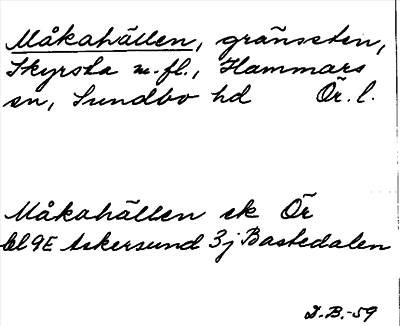 Måkahällen, gränsten,
Skyrsta m.fl., Hammars
sn, Sundbo hd Ör. l.
Måkahällen ek Ör
bl 9E Askersund 3j Bastedalen
D.B.-59